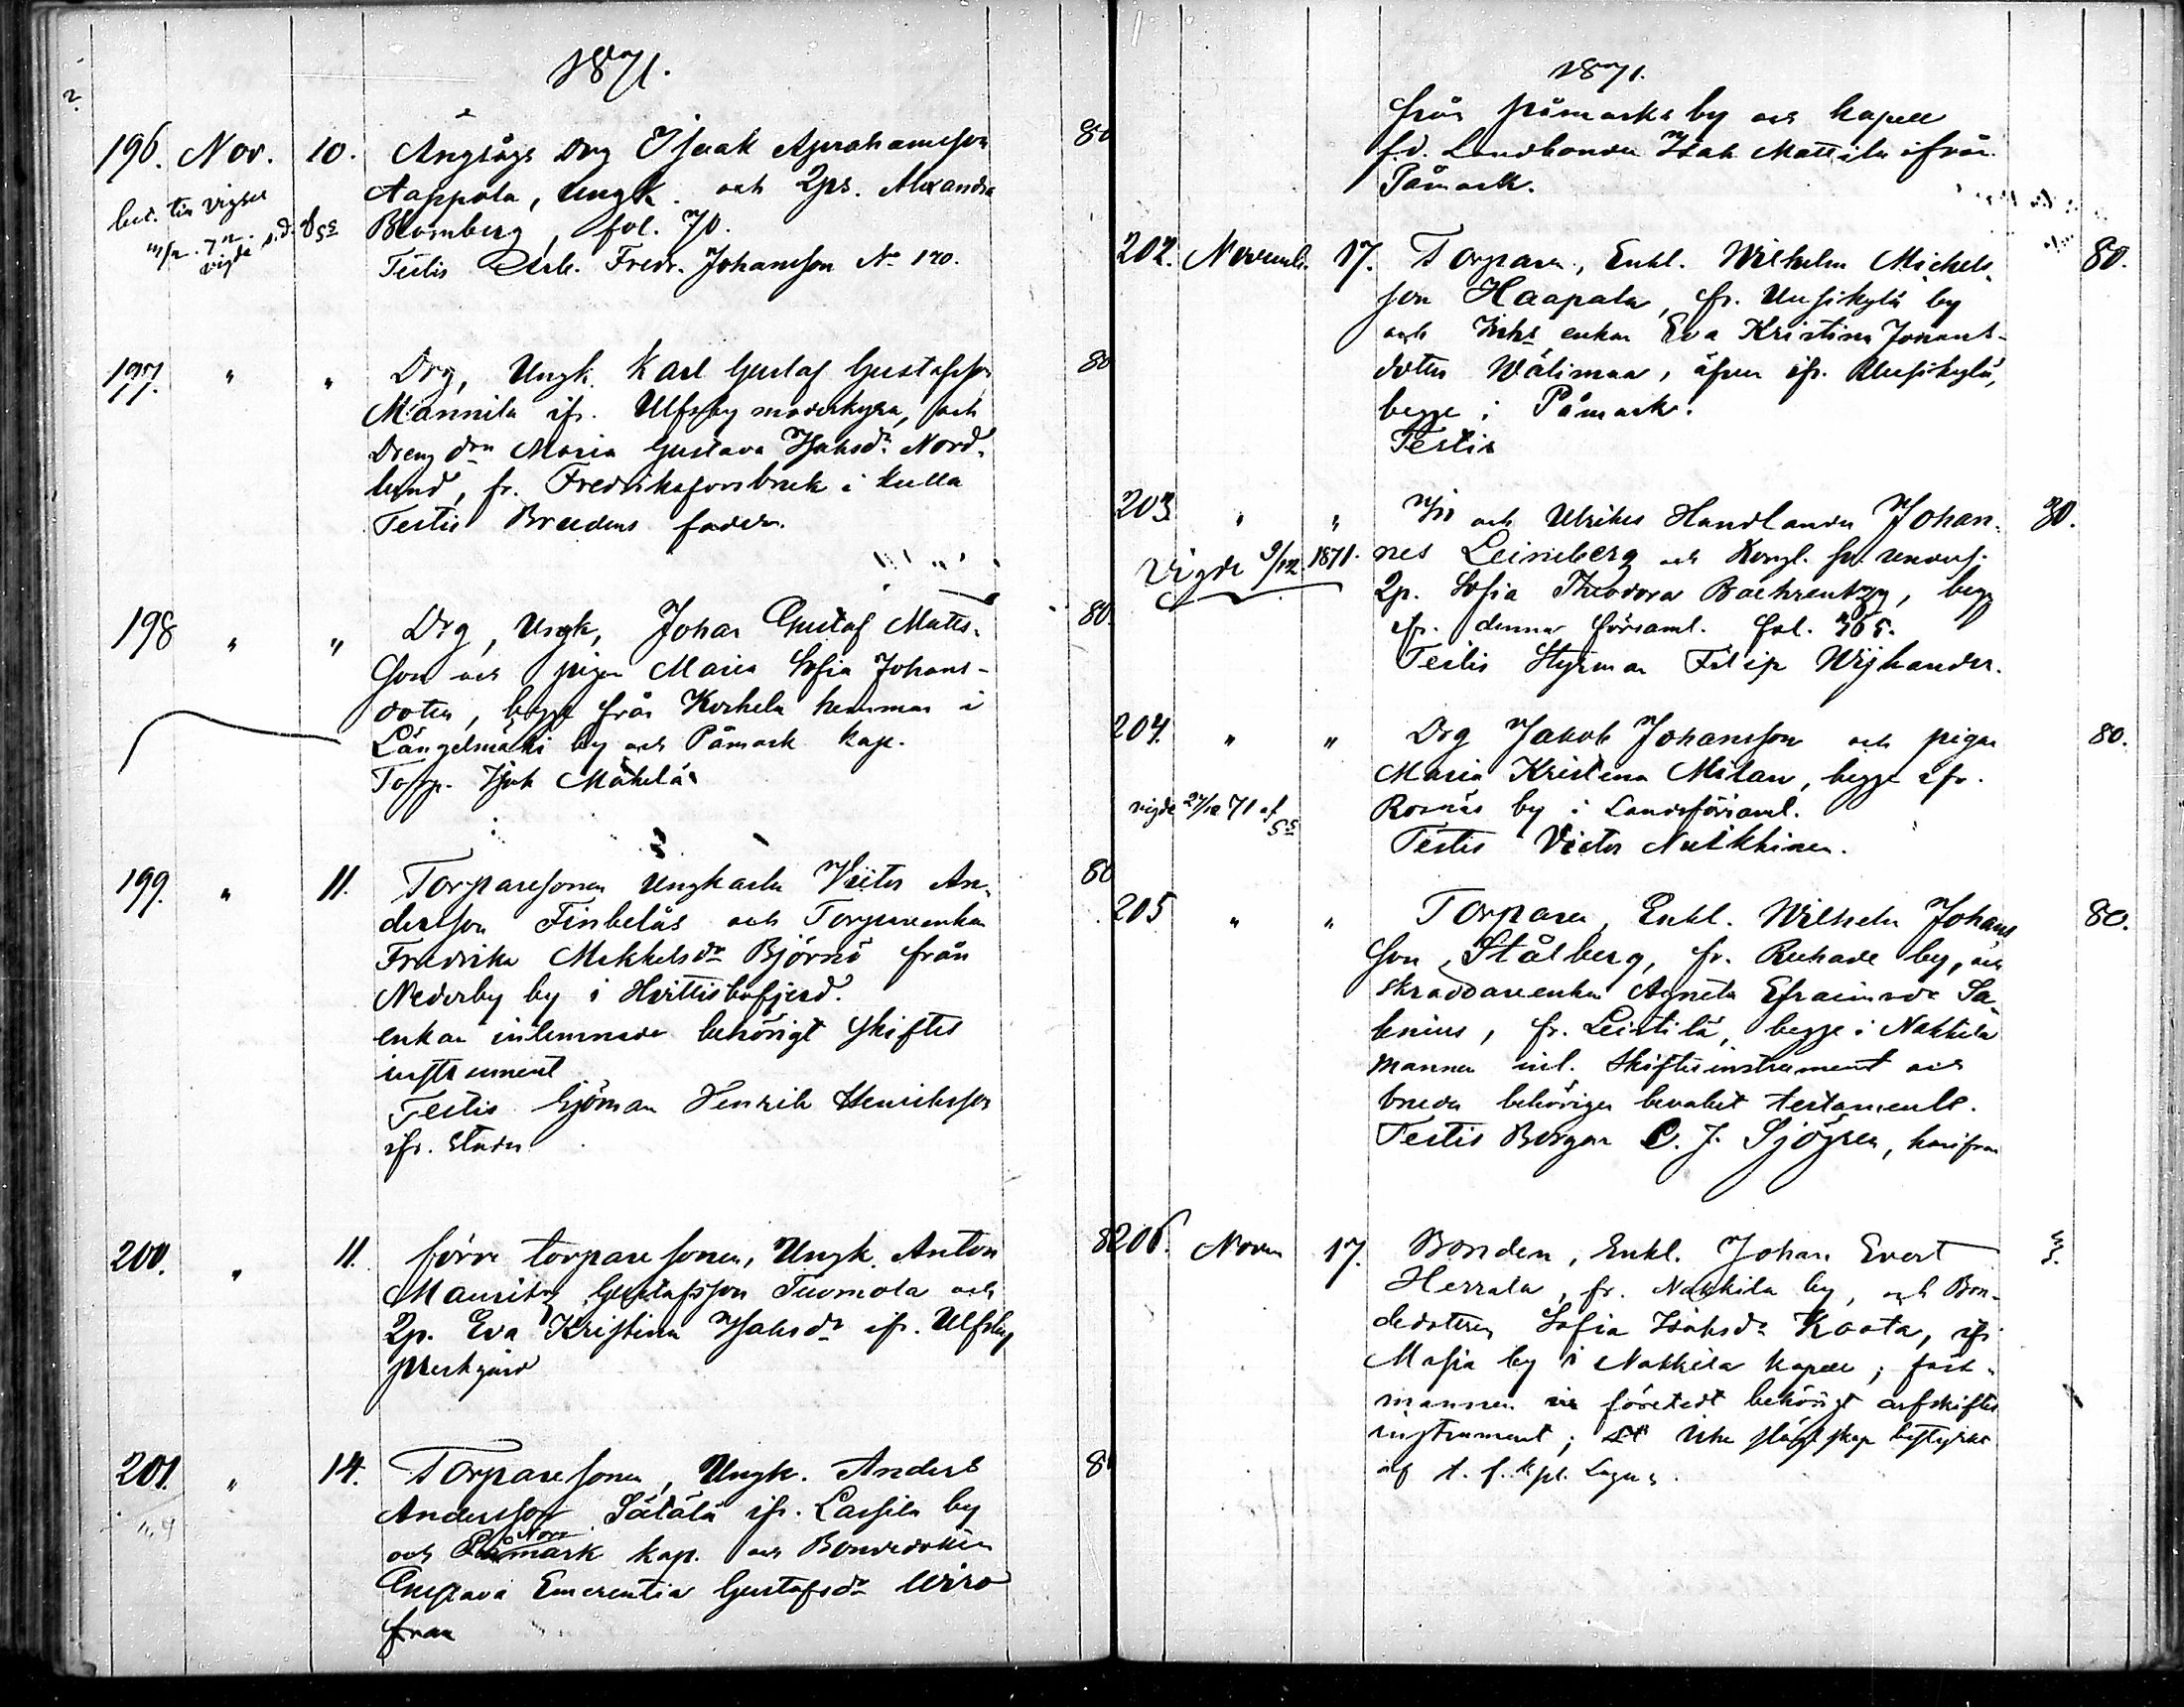 1871.
196. Nov. 10. Ångsågs Drg Isaak Abrahamsson 80
Aappola, Ungk. och Qps. Alexandra
bet. till vigsel
Blomberg, fol. 70.
vigde
Testis Fredr. Johansson No 170.
197. " " Drg, Ungk. Karl Gustaf Gustafsson 80
Mannila ifr. Ulfsby moderkyrka, och
Dreng drn Maria Gustava Isaksdr Nord-
lund, fr. Fredriksforsbruk i Kulla
Testis Brudens fader.
198 " " Drg, Ungk, Johan Gustaf Matts- 80.
son och pigan Maria Sofia Johans-
dotter, begge från Korkela hemman i
Längelmäki by och Påmark kap.
Torp. Isak Mäkelä
199. " 11. Torparesonen Ungkarlen Victor An- 80
dersson Finbelås och Torpareenkan
Fredrika Mikkelsdr Björnö från
Nederby by i Hvittisbofjerd.
enkan inlemnade behörigt skiftes
instrument
Testis Sjöman Henrik Henriksson
ifr. staden
200. " 11. förre torparesonen, Ungk. Anton 8
Mauritz Gustafsson Tuomola och
Qp. Eva Kristina Isaksdr ifr. Ulfsby
prestgård
201. " 14. Torparesonen, Ungk. Anders 8
Andersson Sätälä ifr. Lassila by
Norr
och Påmark kap. och Bondedottern
Gustava Emerentia Gustafsdr Uiro
från
1871.
från Påmarks by och kapell
f.d. Landbonden Isak Mattila ifrån
Påmark.
202. Novemb. 17. Torparen, Enkl. Wilhelm Michels- 80.
son Haapala, fr. Uusikylä by
och Inhs enkan Eva Kristina Johans-
dotter Wälimaa, äfven ifr. Uusikylä,
begge i Påmark.
Testis
203. " " och Ulrikes Handlanden Johan- 80.
Vigde 9/12 1871. nes Leineberg och
Qp. Sofia Theodora Bachrentzy, begge
ifr. denna församl. fol. 365.
Testis Styrman Filip Wijkander.
204. " " Drg Jakob Johansson och pigan 80.
Maria Kristina Milan, begge ifr.
vigde 27/12 71 af
Rosnäs by i Landsförsaml.
Testis Victor Nikkinen.
205 " " Torparen, Enkl. Wilhelm Johans 80.
son Stålberg, fr. Ruhade by, och
skräddareenkan Agneta Efraimsdr Sa-
lenius, fr. Leistilä, begge i Nakkila
mannen inl. skiftesinstrument och
bruden behörigen bevakat testamente.
Testis Borgaren C. J. Sjögren, härifrån
206. Novem 17. Bonden, Enkl. Johan Evert
Herrala, fr. Nakkila by, och Bon-
dedottern Sofia Isaksdr Koota, ifr
Masia by i Nakkila kapell; fäst-
mannen företedt behörigt arfskiftes
instrument; slägtskap bestyrkt
af t. f. kpl. Lagus